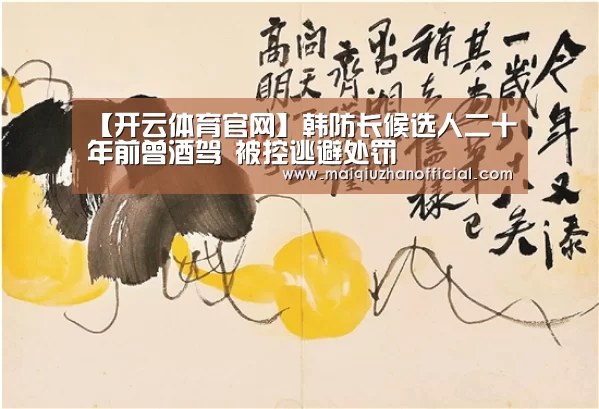 【开云体育官网】韩防长候选人二十
年前曾酒驾 被控逃避处罚
www.maiqiuzhanofficial.com
今年又添
一歲矣
其畫筆已
稍去舊樣
否湘
齊璜
問天
高明